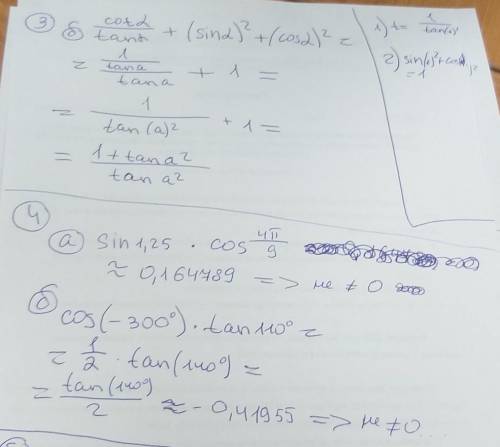 ③ б) cotα/tanα + (sinα)² + (cosα)² =
= 1/tana/tana + 1 =
= 1/tan(a)² + 1 =
= 1+tana²/tana²
1) t = 1/tan(α)
2) sin(α)²+cos(α)²
= 1
④
а) sin1,25 · cos 4π/9
≈ 0,164789 => не ≠ 0
б)
cos(-300°) · tan110° =
= 1/2 · tan(140°) =
= tan(140°)/2 ≈ -0,41955 => не ≠ 0